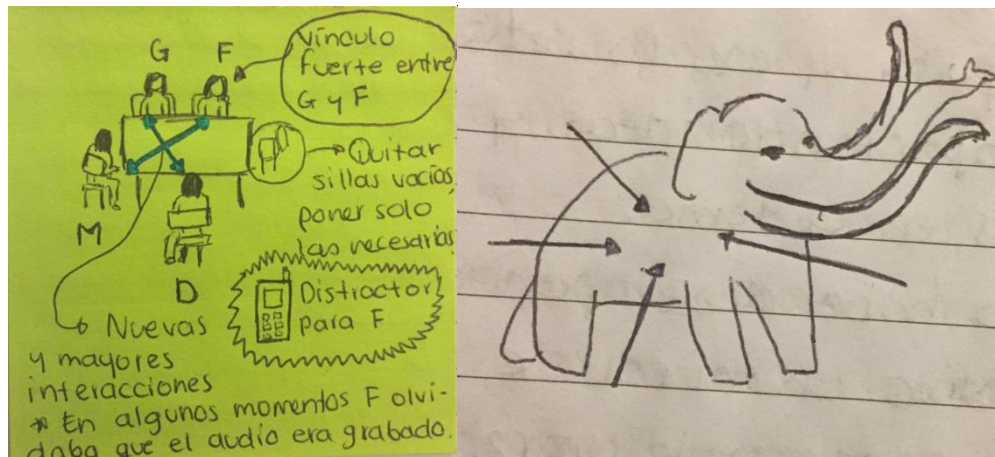 G F
Vínculo
fuerte entre
G y F
Quitar
sillas vacías,
poner solo
las necesarias
M
D
Distractor
para F
Nuevas
y mayores
interacciones
* En algunos momentos F olvi-
daba que el audio era grabado.